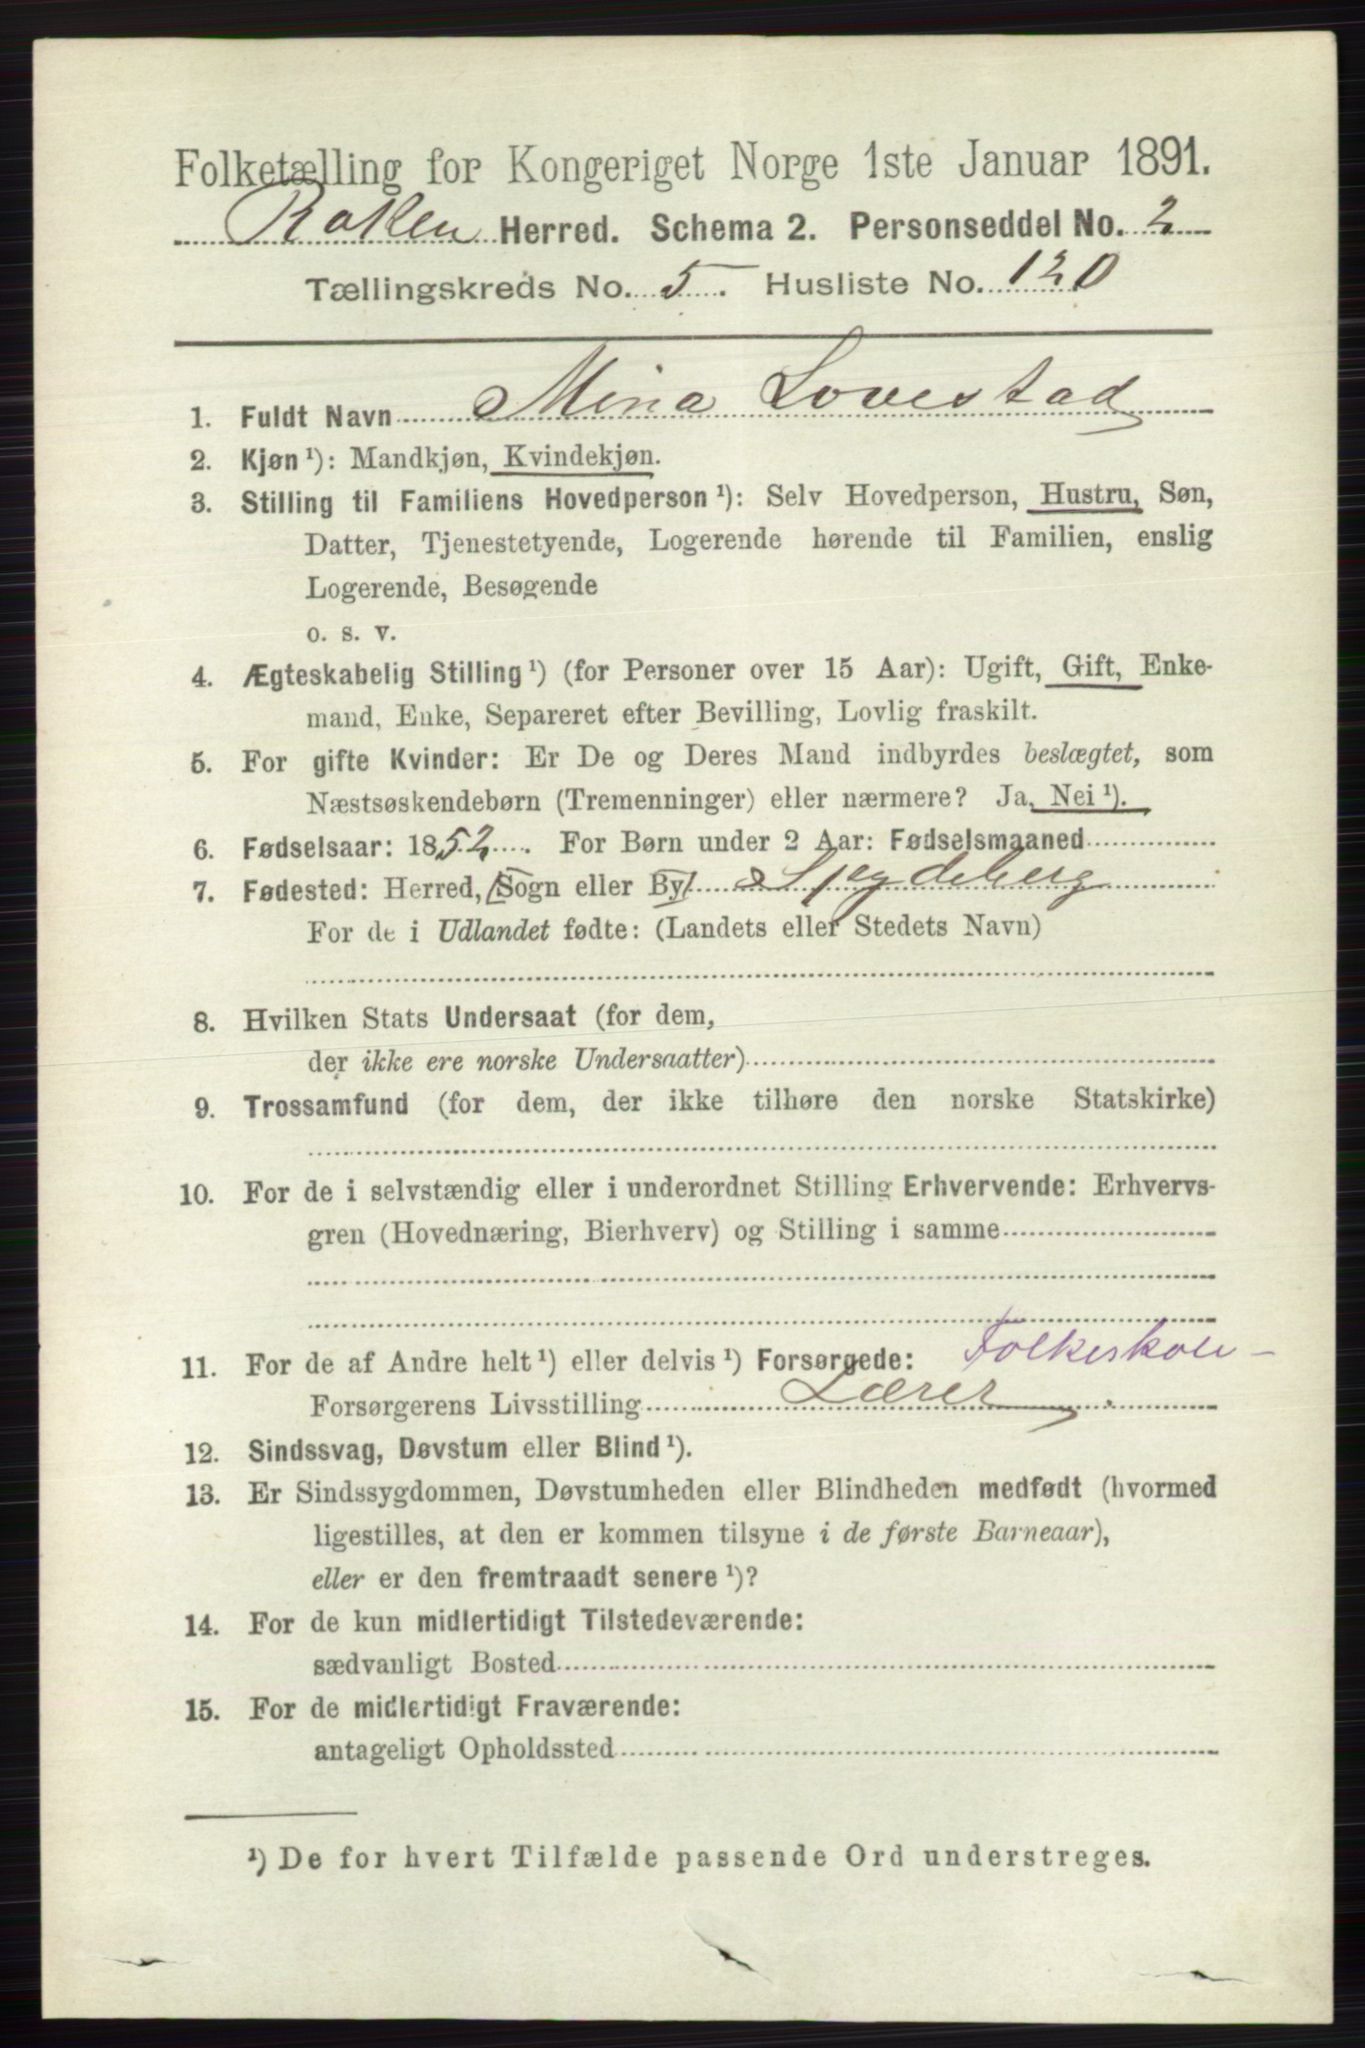 Folketælling for Kongeriget Norge 1ste Januar 1891.
Røken Herred. Schema 2. Personseddel No. 2
Tællingskreds No. 5. Husliste No. 120
1. Fuldt Navn Mina Lovestad
2. Kjøn¹): Mandkjøn, Kvindekjøn.
3. Stilling til Familiens Hovedperson¹): Selv Hovedperson, Hustru, Søn,
Datter, Tjenestetyende, Logerende hørende til Familien, enslig
Logerende, Besøgende
o. s. v.
4. Ægteskabelig Stilling¹) (for Personer over 15 Aar): Ugift, Gift, Enke-
mand, Enke, Separeret efter Bevilling, Lovlig fraskilt.
5. For gifte Kvinder: Er De og Deres Mand indbyrdes beslægtet, som
Næstsøskendebørn (Tremenninger) eller nærmere? Ja, Nei¹).
6. Fødselsaar: 1852. For Børn under 2 Aar: Fødselsmaaned
7. Fødested: Herred, (Sogn eller By) Spydeberg
For de i Udlandet fødte: (Landets eller Stedets Navn)
8. Hvilken Stats Undersaat (for dem,
der ikke ere norske Undersaatter)
9. Trossamfund (for dem, der ikke tilhøre den norske Statskirke)
10. For de i selvstændig eller i underordnet Stilling Erhvervende: Erhvervs-
gren (Hovednæring, Bierhverv) og Stilling i samme
11. For de af Andre helt¹) eller delvis¹) Forsørgede: Folkeskole-
Forsørgerens Livsstilling Lærer.
12. Sindssvag, Døvstum eller Blind¹).
13. Er Sindssygdommen, Døvstumheden eller Blindheden medfødt (hvormed
ligestilles, at den er kommen tilsyne i de første Barneaar),
eller er den fremtraadt senere¹)?
14. For de kun midlertidigt Tilstedeværende:
sædvanligt Bosted
15. For de midlertidigt Fraværende:
antageligt Opholdssted
¹) De for hvert Tilfælde passende Ord understreges.